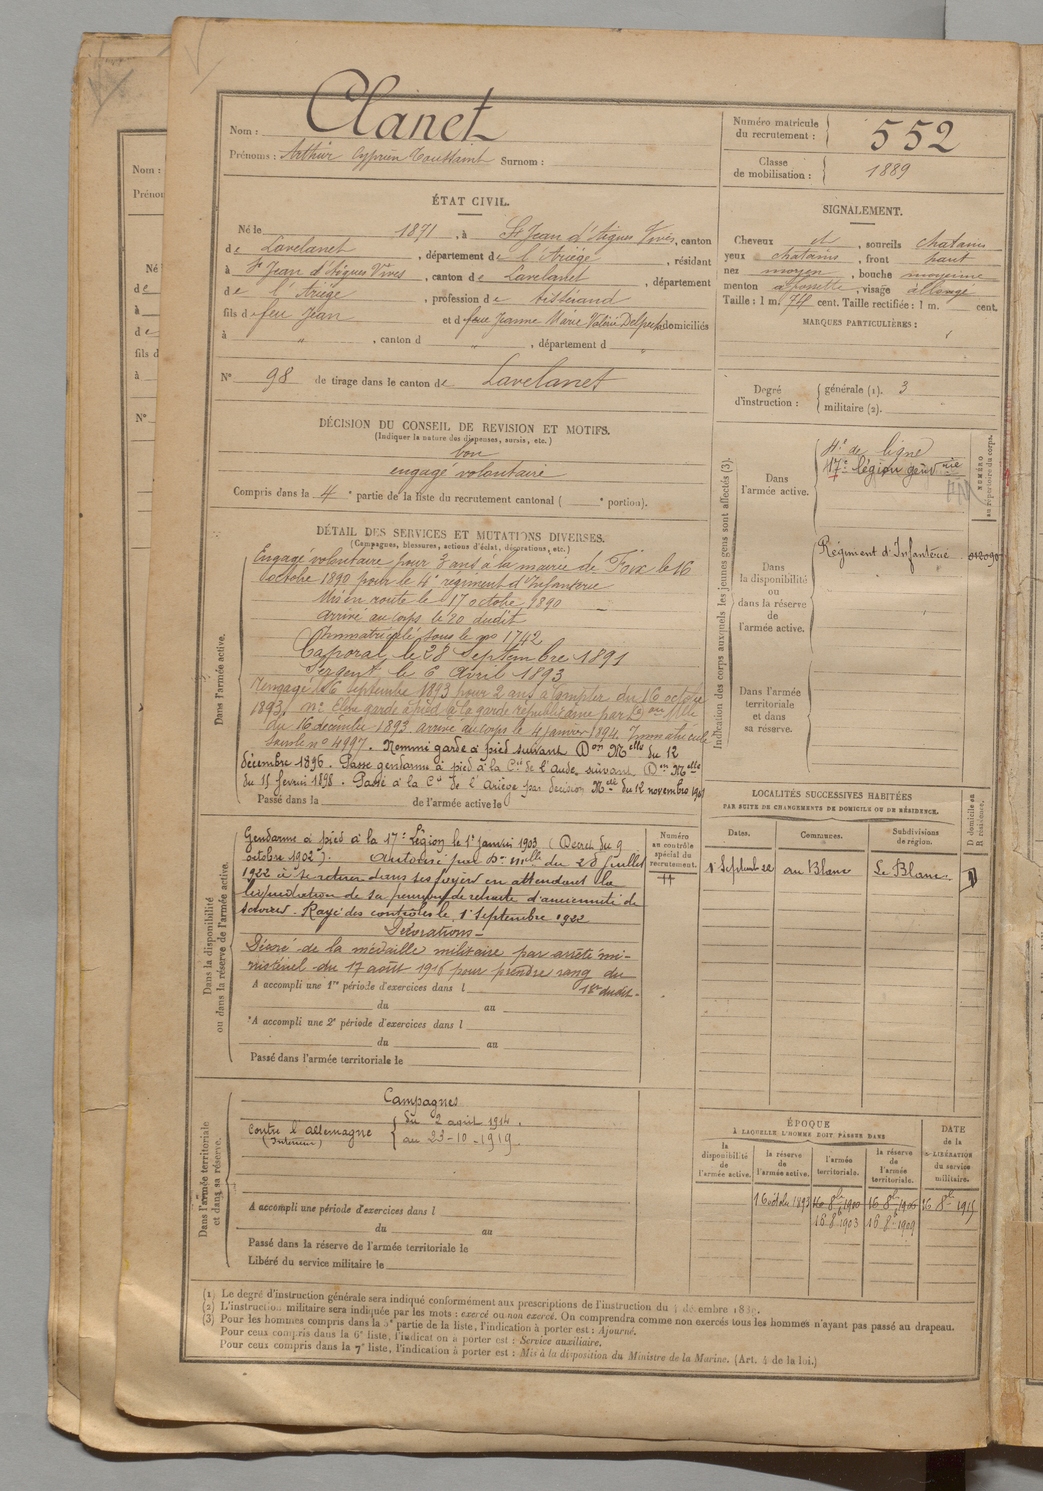 Nom : Clanet
Prénoms : Arthur Cyprien Toussaint Surnom :
Numéro matricule
du recrutement : 552
Classe
de mobilisation : 1889
ÉTAT CIVIL.
Né le 1871, à St Jean d'Aigues Vives, canton
de Lavelanet, département de l'Ariège, résidant
à St Jean d'Aigues Vives, canton de Lavelanet, département
de l'Ariège, profession de tisserand
fils de feu Jean et de feue Jeanne Marie Valérie Delpech domiciliés
à " , canton d " , département d "
N° 98 de tirage dans le canton de Lavelanet
SIGNALEMENT.
Cheveux et, sourcils chatains
yeux chatains, front haut
nez moyen, bouche moyenne
menton à fossette, visage allongé
Taille : 1 m. 74 cent. Taille rectifiée : 1 m. cent.
MARQUES PARTICULIÈRES :
Degré
d'instruction :
générale (1). 3
militaire (2).
DÉCISION DU CONSEIL DE REVISION ET MOTIFS.
(Indiquer la nature des dispenses, sursis, etc.)
bon
engagé volontaire
Compris dans la 4e partie de la liste du recrutement cantonal ( e portion).
DÉTAIL DES SERVICES ET MUTATIONS DIVERSES.
(Campagnes, blessures, actions d'éclat, décorations, etc.)
Dans l'armée active.
Engagé volontaire pour 3 ans à la mairie de Foix le 16
octobre 1890 pour le 4e regiment d'Infanterie
Mis en route le 17 octobre 1890
arrivé au corps le 20 dudit
Immatriculé sous le no 1742
Caporal le 28 Septembre 1891
Sergent le 6 Avril 1893
Rengagé le 6 septembre 1893 pour 2 ans à compter du 16 octobre
1893. Élève garde à pied à la garde républicaine par Don Mlle
du 16 décembre 1893 arrivé au corps le 4 janvier 1894 Immatriculé
sous le n° 4997. Nommé garde à pied suivant Don Mlle du 12
décembre 1896. Passé gendarme à pied à la Cie de l'Aude, suivant Don Mlle
du 15 fevrier 1898. Passé à la Cie de l'Ariège par décision Mlle du 12 novembre 1901
Passé dans la de l'armée active le
Dans la disponibilité
ou dans la réserve de l'armée active.
Gendarme à pied à la 17e Légion le 1er janvier 1903 (Décret du 9
octobre 1902). Autorisé par Don mlle du 28 Juillet
1922 à se retirer dans ses foyers en attendant la
liquidation de sa pension de retraite d'ancienneté de
services. Rayé des contrôles le 1er Septembre 1922
Décorations
Décoré de la médaille militaire par arrêté mi-
nistériel du 17 août 1916 pour prendre rang du
dudit
A accompli une 1re période d'exercices dans l
du au
A accompli une 2e période d'exercices dans l
du au
Passé dans l'armée territoriale le
Numéro
au contrôle
spécial du
recrutement.
Dans l'armée territoriale
et dans sa réserve.
Campagnes
Contre l'allemagne
(Intérieur)
du 2 août 1914
au 23-10-1919
A accompli une période d'exercices dans l
du au
Passé dans la réserve de l'armée territoriale le
Libéré du service militaire le
Indication des corps auxquels les jeunes gens sont affectés (3).
Dans
l'armée active.
4e de ligne
17e légion gendie
NUMÉRO
au répertoire du corps.
Dans
la disponibilité
ou
dans la réserve
de
l'armée active.
Régiment d'Infanterie
Dans l'armée
territoriale
et dans
sa réserve.
LOCALITÉS SUCCESSIVES HABITÉES
PAR SUITE DE CHANGEMENTS DE DOMICILE OU DE RÉSIDENCE.
Dates. Communes. Subdivisions
de région.
D. domicile ou
R. résidence.
1er Septembre 22 au Blanc Le Blanc D
ÉPOQUE
À LAQUELLE L'HOMME DOIT PASSER DANS
la
disponibilité
de
l'armée active.
la réserve
de
l'armée active.
l'armée
territoriale.
la réserve
de
l'armée
territoriale.
DATE
de la
LIBÉRATION
du service
militaire.
16 octobre 1893 16 8bre 1900 16 8bre 1906 16 8bre 1915
16 8b 1903 16 8b 1909
(1) Le degré d'instruction générale sera indiqué conformément aux prescriptions de l'instruction du
(2) L'instruction militaire sera indiquée par les mots : exercé ou non exercé. On comprendra comme non exercés tous les hommes n'ayant pas passé au drapeau.
(3) Pour les hommes compris dans la 5e partie de la liste, l'indication à porter est : Ajourné.
Pour ceux compris dans la 6e liste, l'indication à porter est : Service auxiliaire.
Pour ceux compris dans la 7e liste, l'indication à porter est : Mis à la disposition du Ministre de la Marine. (Art. 4 de la loi.)